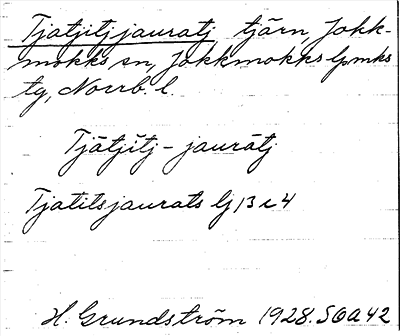 Tjatjitjjauratj tjärn, Jokk-
mokks sn, Jokkmokks lpmks
tg, Norrb. l.
Tjātjĭtj-jaurātj
Tjatitsjaurats lj 13 i 4
H. Grundström 1928. SOA 42